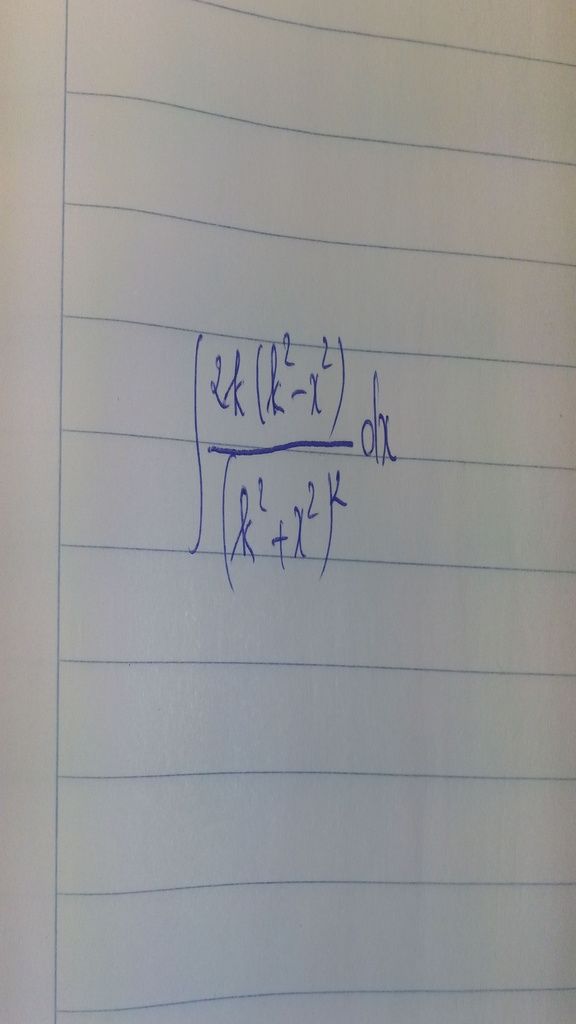 ∫ 2k(k²-x²)/(k²+x²)² dx